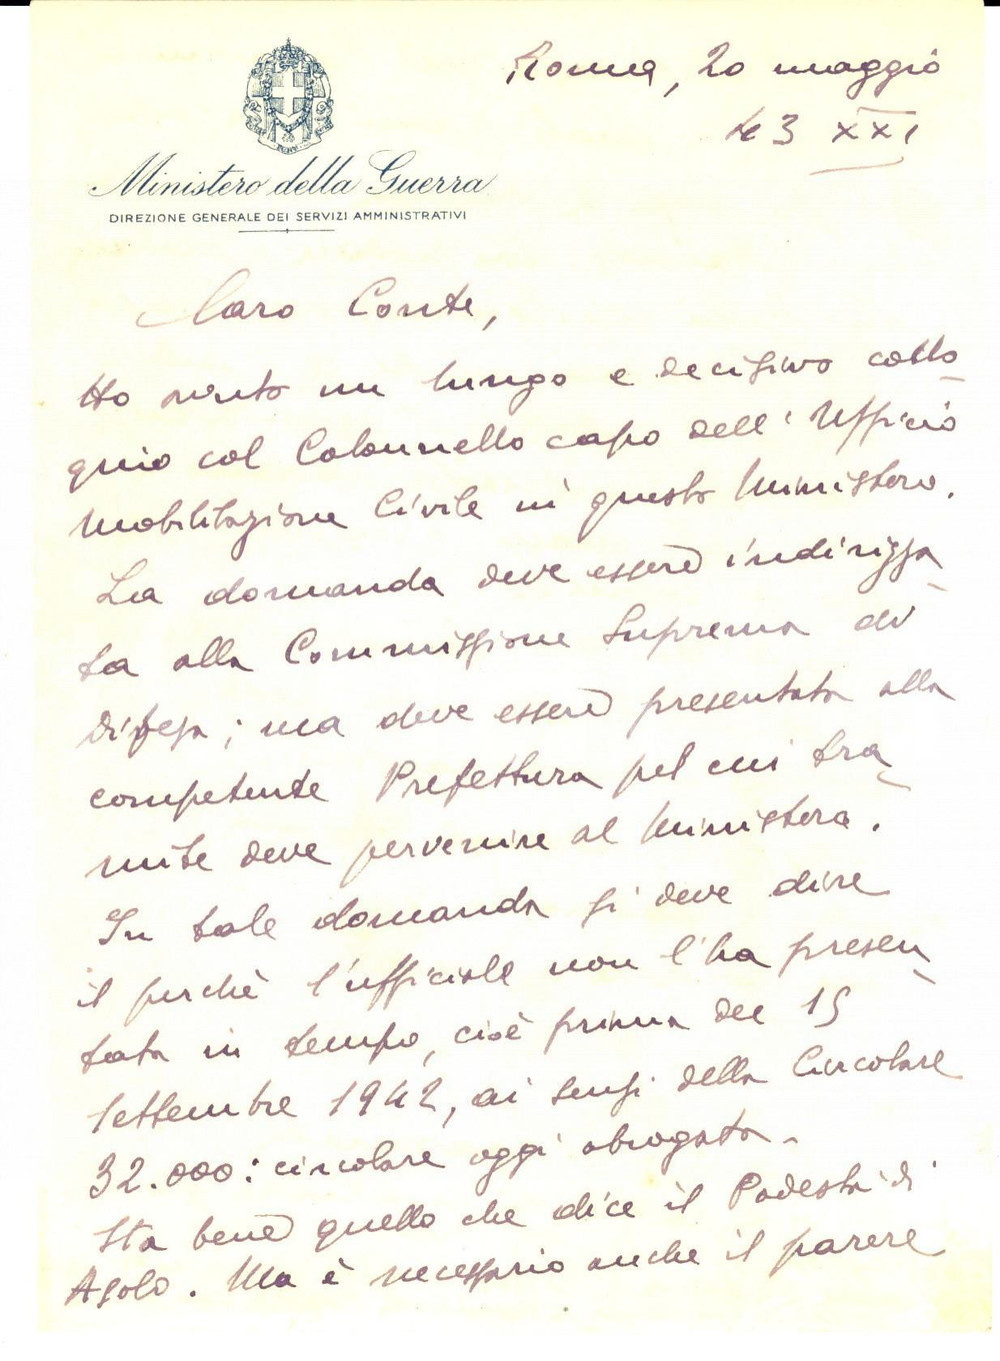 Roma, 20 maggio
43 XXI
Ministero della Guerra
DIREZIONE GENERALE DEI SERVIZI AMMINISTRATIVI
Caro Conte,
Ho avuto un lungo e decisivo collo-
quio col Colonnello capo dell'Ufficio
Mobilitazione Civile in questo Ministero.
La domanda deve essere indirizza-
ta alla Commissione Suprema di
Difesa; ma deve essere presentata alla
competente Prefettura pel cui tra-
mite deve pervenire al Ministero.
In tale domanda si deve dire
il perchè l'ufficiale non l'ha presen-
tata in tempo, cioè prima del 15
Settembre 1942, ai sensi della Circolare
32.000: circolare oggi abrogata.
Sta bene quello che dice il Podestà di
Asolo. Ma è necessario anche il parere